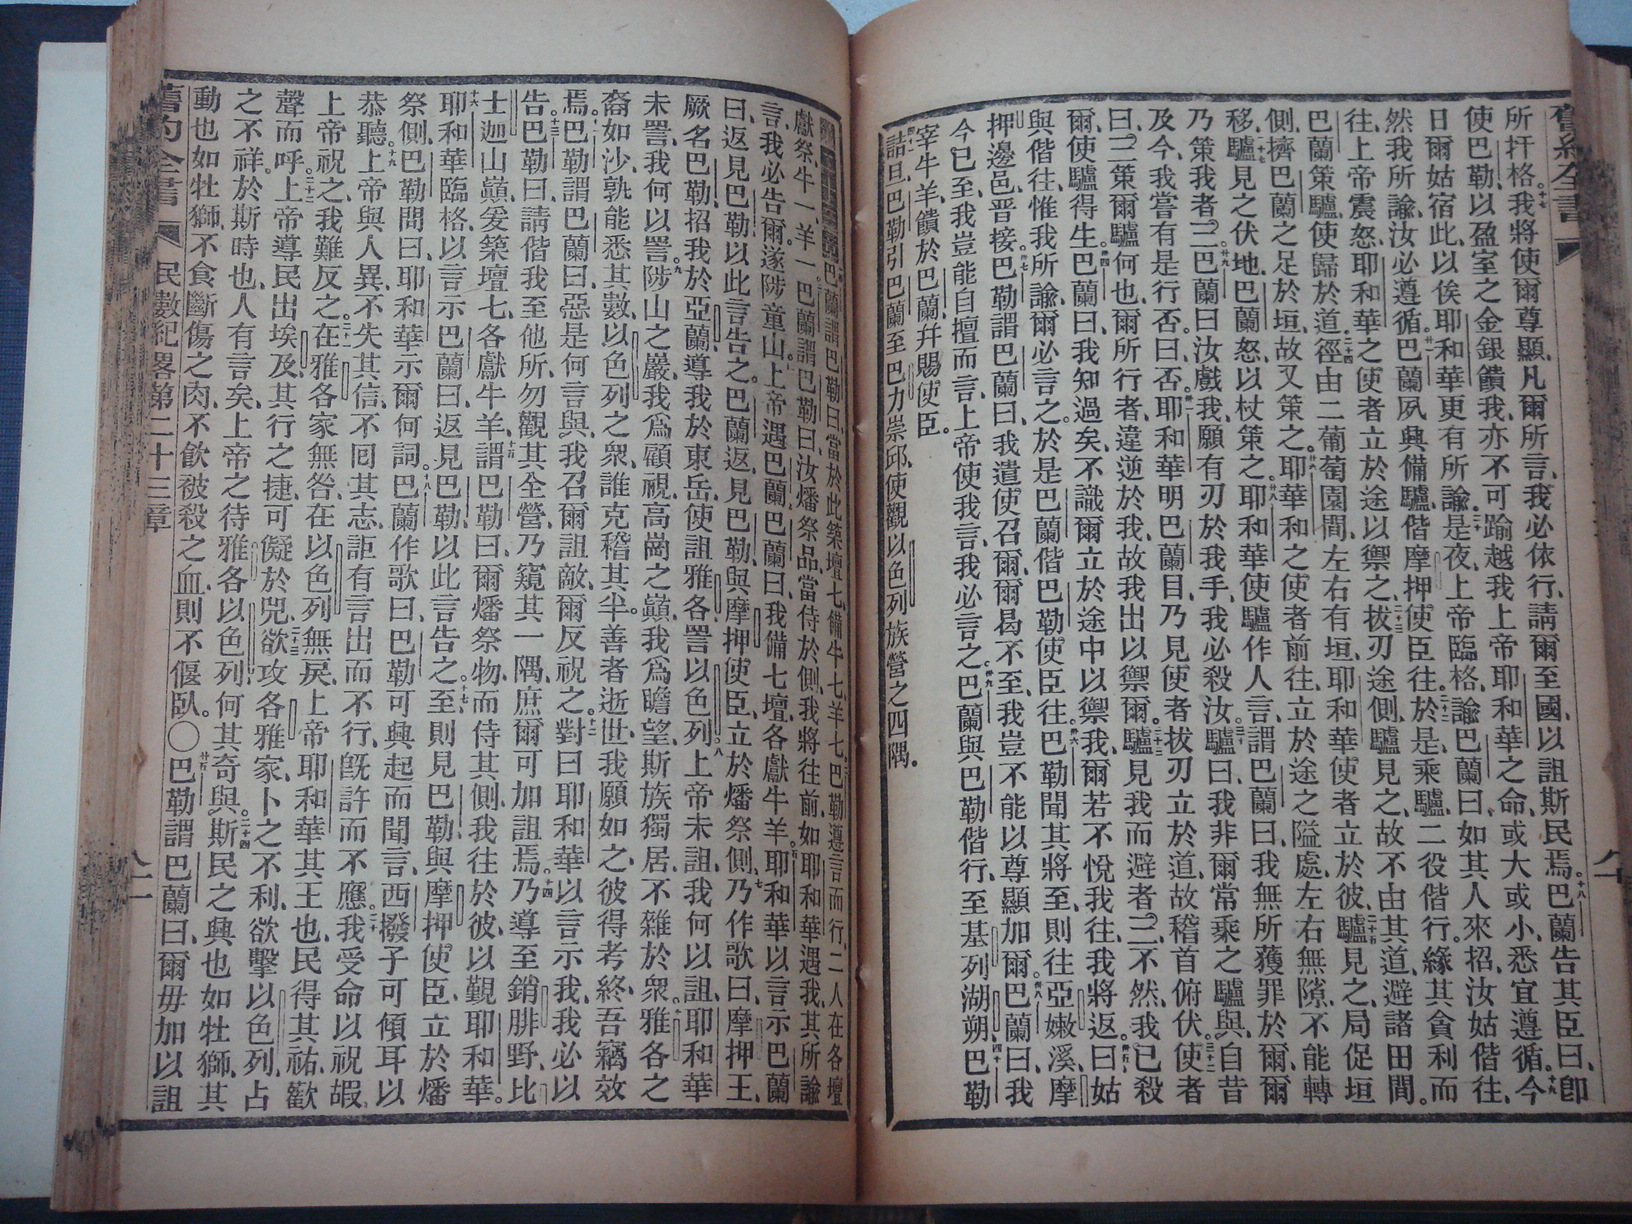 舊約全書
所扞格、十七我將使爾尊顯、凡爾所言、我必依行、請爾至國、以詛斯民焉。十八巴蘭告其臣曰、卽
使巴勒以盈室之金銀饋我、亦不可踰越我上帝耶和華之命、或大或小、悉宜遵循、十九今
日爾姑宿此、以俟耶和華更有所諭。二十是夜上帝臨格、諭巴蘭曰、如其人來招、汝姑偕往、
然我所諭、汝必遵循。廿一巴蘭夙興備驢、偕摩押使臣往、二十二於是乘驢、二役偕行。緣其貪利而
往、上帝震怒、耶和華之使者、立於途以禦之、二十三拔刃途側、驢見之、故不由其道、避諸田間。
巴蘭策驢、使歸於道。二十四徑由二葡萄園間、左右有垣、耶和華使者立於彼、二十五驢見之、局促垣
側、擠巴蘭之足於垣、故又策之。廿六耶華和之使者前往、立於途之隘處、左右無隙、不能轉
移、廿七驢見之伏地、巴蘭怒、以杖策之。廿八耶和華使驢作人言、謂巴蘭曰、我無所獲罪於爾、爾
乃策我者三。廿九巴蘭曰、汝戲我、願有刃於我手、我必殺汝。三十驢曰、我非爾常乘之驢與、自昔
及今、我嘗有是行否。曰、否。卅一耶和華明巴蘭目、乃見使者拔刃立於道、故稽首俯伏。三十二使者
曰、三策爾驢何也、爾所行者、違逆於我、故我出以禦爾。三十三驢見我而避者三、不然、我已殺
爾、使驢得生。卅四巴蘭曰、我知過矣、不識爾立於途中以禦我、爾若不悅我往、我將返。卅五曰、姑
與偕往、惟我所諭、爾必言之、於是巴蘭偕巴勒使臣往。卅六巴勒聞其將至、則往亞嫩溪、摩
押邊邑、晋接。卅七巴勒謂巴蘭曰、我遣使召爾、爾曷不至、我豈不能以尊顯加爾。卅八巴蘭曰、我
今已至、我豈能自擅而言、上帝使我言、我必言之。卅九巴蘭與巴勒偕行、至基列湖朔。四十巴勒
宰牛羊、饋於巴蘭、幷賜使臣。
詰旦、巴勒引巴蘭至巴力崇邱、使觀以色列族營之四隅。
巴蘭謂巴勒曰、當於此築壇七、備牛七、羊七、巴勒遵言而行、二人在各壇
獻祭、牛一羊一。巴蘭謂巴勒曰、汝燔祭品、當侍於側、我將往前、如耶和華遇我、其所諭
言、我必告爾、遂陟童山。上帝遇巴蘭、巴蘭曰、我備七壇、各獻牛羊。耶和華以言示巴蘭
曰、返見巴勒、以此言告之。巴蘭返、見巴勒與摩押使臣、立於燔祭側、七乃作歌曰、摩押王、
厥名巴勒、招我於亞蘭、導我於東岳、使詛雅各、詈以色列。八上帝未詛、我何以詛、耶和華
未詈、我何以詈。九陟山之巖、我爲顧視、高崗之巔、我爲瞻望、斯族獨居、不雜於衆。雅各之
裔如沙、孰能悉其數、以色列之衆、誰克稽其半。善者逝世、我願如之、彼得考終、吾竊效
焉。巴勒謂巴蘭曰、惡是何言與、我召爾詛敵、爾反祝之。十二對曰、耶和華以言示我、我必以
告。巴勒曰、請偕我至他所、勿觀其全營、乃窺其一隅、庶爾可加詛焉。十四乃導至銷腓野、比
士迦山巔、爰築壇七、各獻牛羊。十五謂巴勒曰、爾燔祭物、而侍其側、我往於彼、以覲耶和華。
十六耶和華臨格、以言示巴蘭曰、返見巴勒、以此言告之。十七至則見巴勒、與摩押使臣、立於燔
祭側、巴勒問曰、耶和華示爾何詞。十八巴蘭作歌曰、巴勒可興起而聞言、西撥子可傾耳以
恭聽。十九上帝與人異、不失其信、不回其志、詎有言出而不行、旣許而不應。二十我受命以祝嘏、
上帝祝之、我難反之。二十一在雅各家無咎、在以色列無戾、上帝耶和華其王也、民得其祐、歡
聲而呼。二十二上帝導民出埃及、其行之捷、可儗於兕。二十三欲攻各雅家、卜之不利、欲擊以色列、占
之不祥。於斯時也、人有言矣、上帝之待雅各以色列何其奇與。二十四斯民之興也如牡獅、其
動也如牡獅、不食斷傷之肉、不飮被殺之血、則不偃臥。〇廿五巴勒謂巴蘭曰、爾毋加以詛
舊約全書 民數紀畧第二十三章